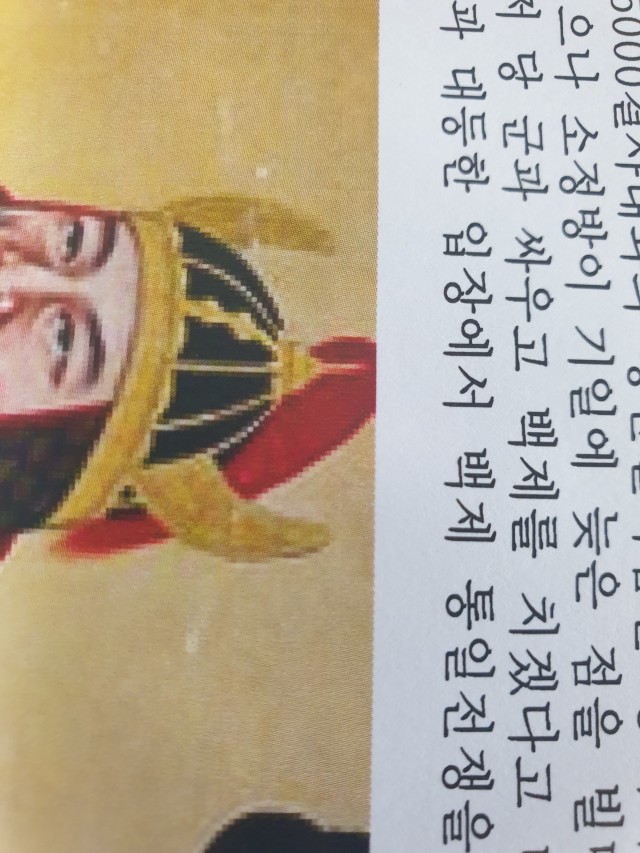 5000결사대와의
으나 소정방이 기일에 늦은 점을
저 당 군과 싸우고 백제를 치겠다고
과 대등한 입장에서 백제 통일전쟁을